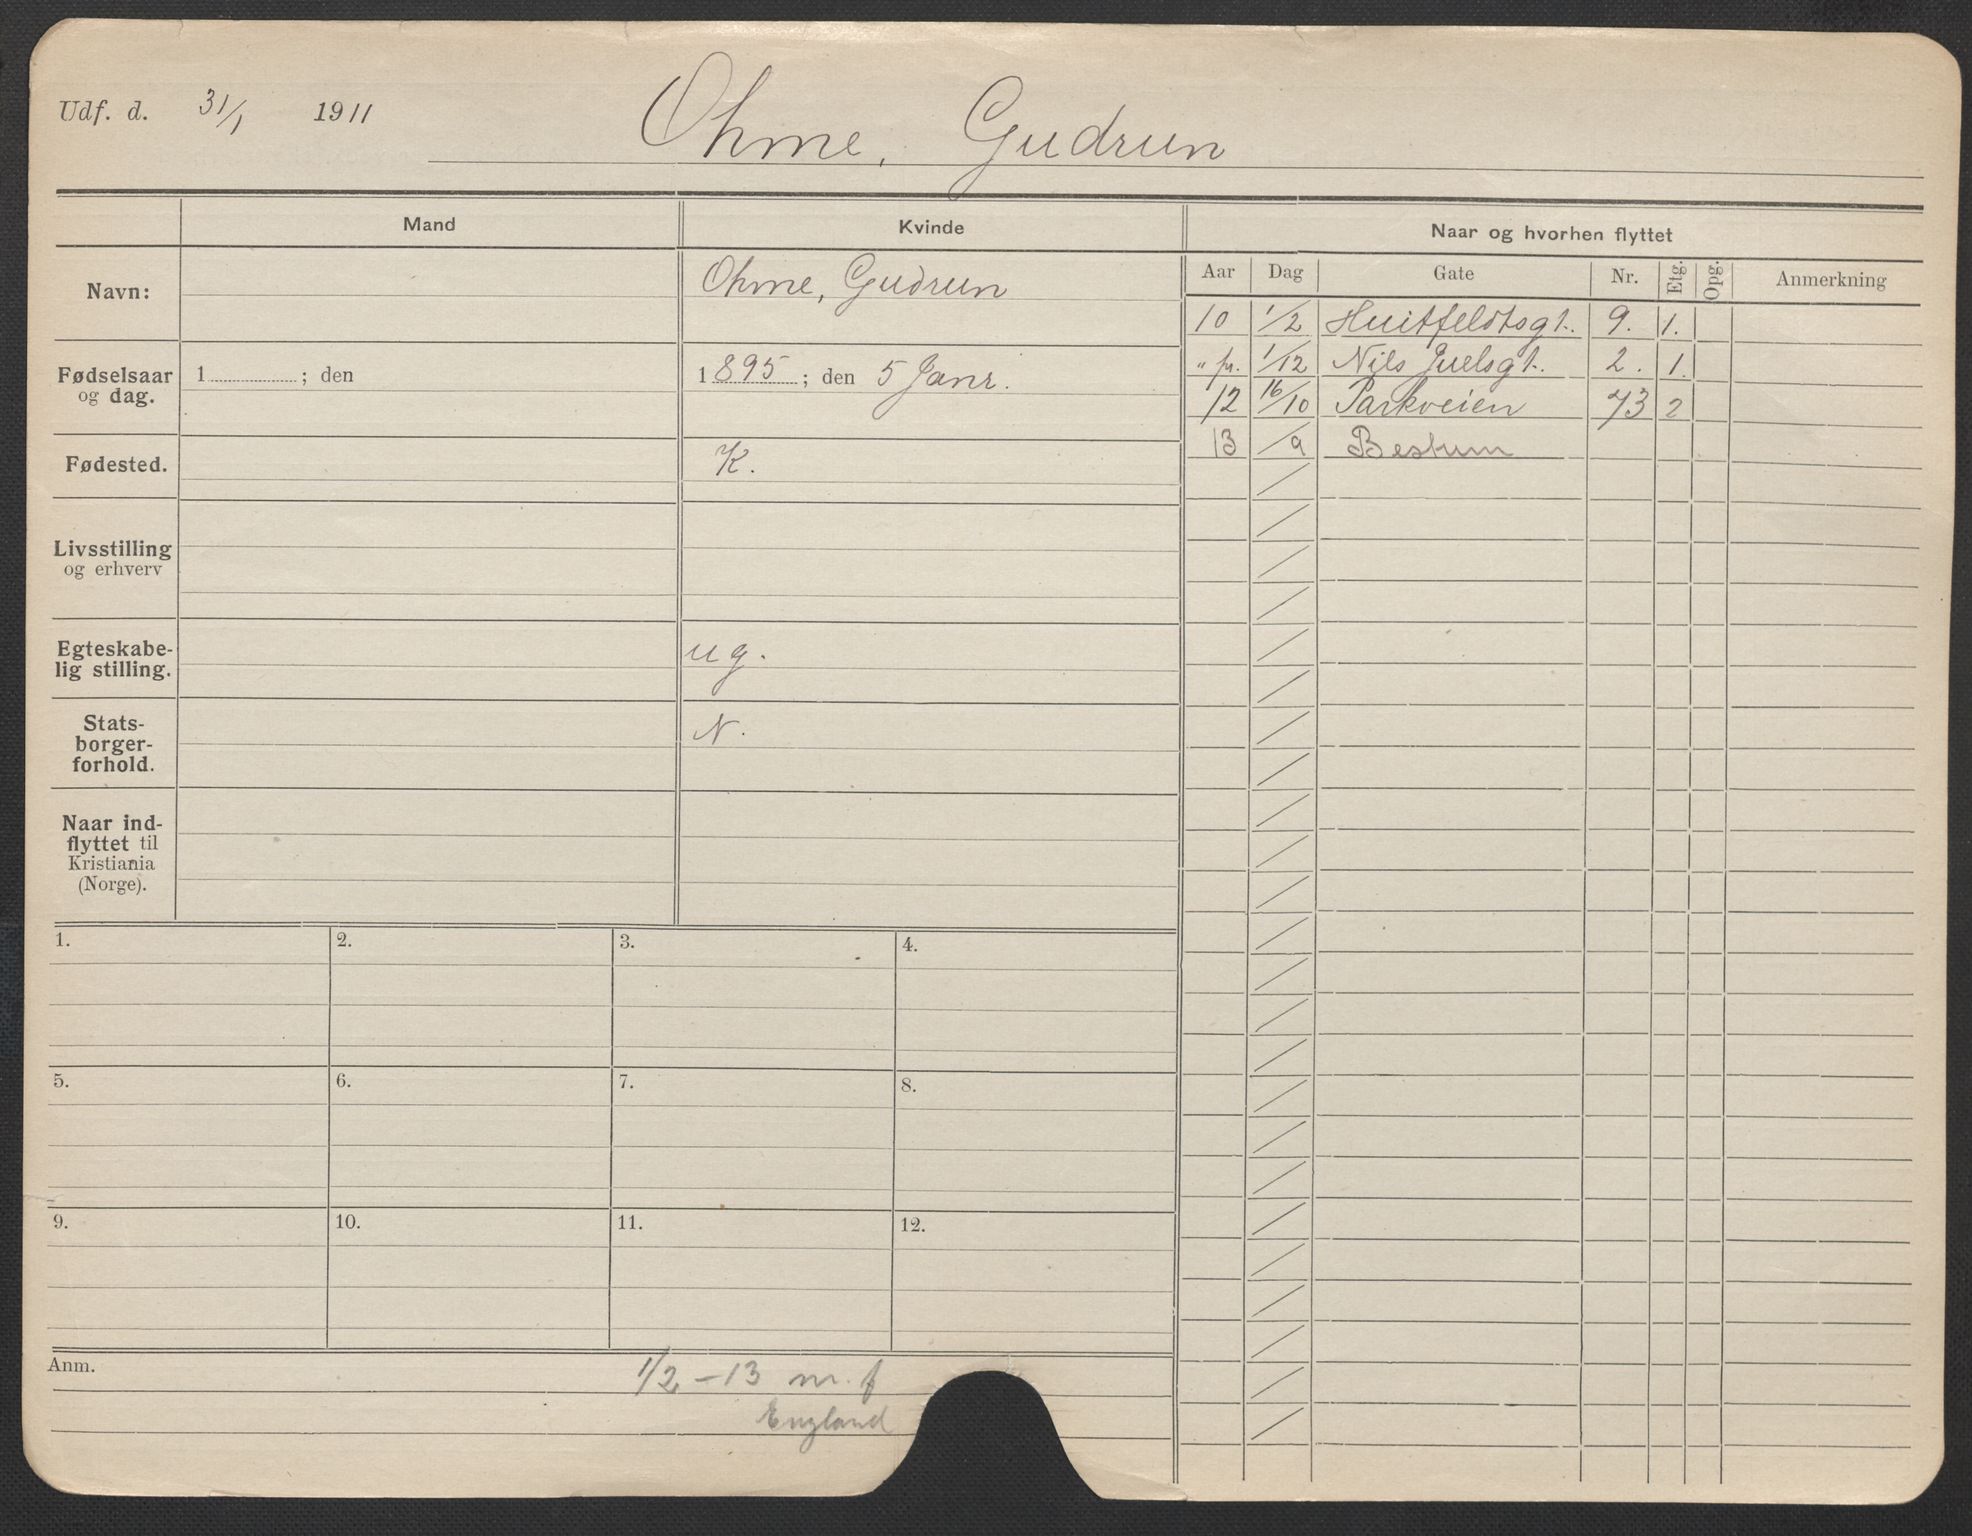 Udf. d. 31/1 1911 Ohme, Gudrun
Mand Kvinde Naar og hvorhen flyttet
Aar Dag Gate Nr. Etg. Opg. Anmerkning
Navn: Ohme, Gudrun
10 1/2 Huitfeldtsgt. 9. 1.
" fr. 1/12 Nils Juelsgt. 2. 1.
12 16/10 Parkveien 73 2
13 /9 Bestum
Fødselsaar
og dag.
1 ; den
1895 ; den 5 Janr.
Fødested. K.
Livsstilling
og erhverv
Egteskabe-
lig stilling.
ug.
Stats-
borger-
forhold.
N.
Naar ind-
flyttet til
Kristiania
(Norge).
1. 2. 3. 4.
5. 6. 7. 8.
9. 10. 11. 12.
Anm. 1/2 - 13 m. f
England